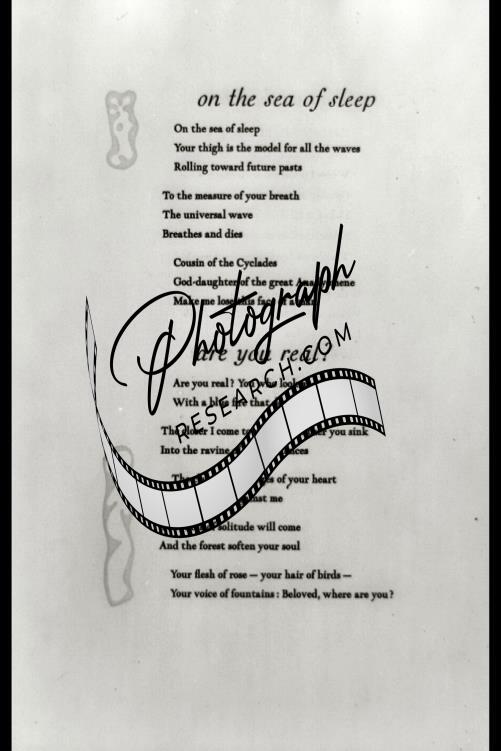 on the sea of sleep
On the sea of sleep
Your thigh is the model for all the waves
Rolling toward future pasts
To the measure of your breath
The universal wave
Breathes and dies
Cousin of the Cyclades
God-daughter of the great
Make me lose this face of
are you real?
Are you real? You who
With a fire that
The closer I come you sink
Into the ravine
of your heart
me
solitude will come
And the forest soften your soul
Your flesh of rose — your hair of birds —
Your voice of fountains : Beloved, where are you?
Photograph
RESEARCH.COM